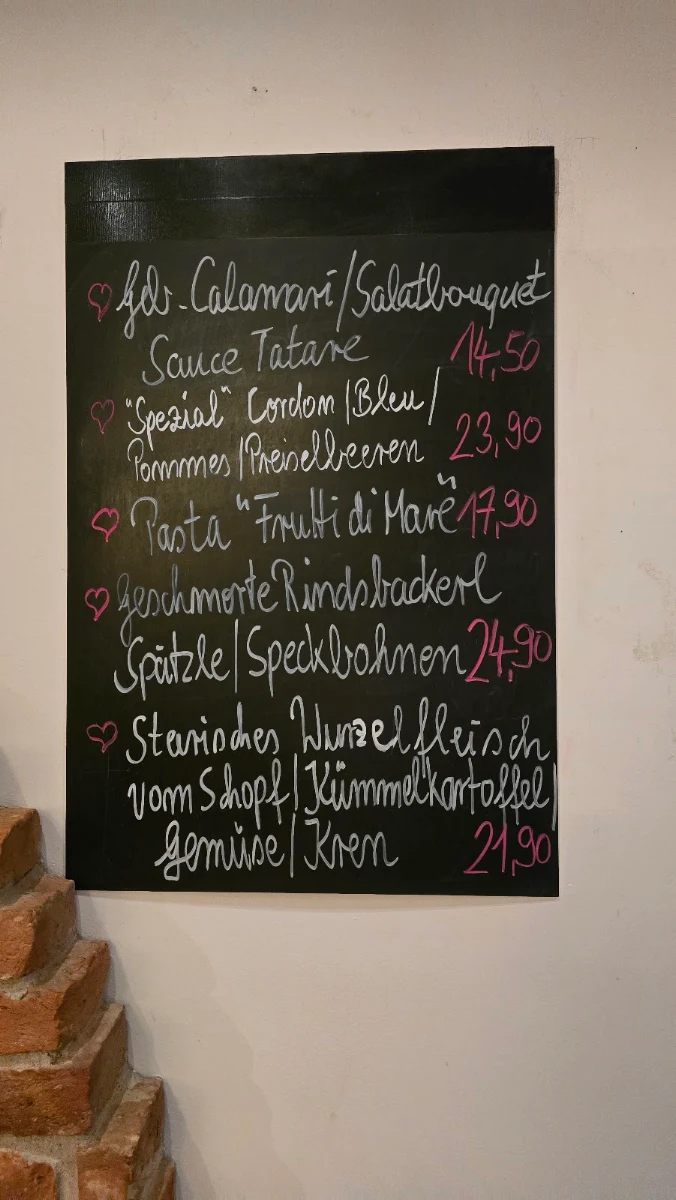 ♡ Geb. Calamari/Salatbouquet
Sauce Tatare 14,50
♡ "Spezial" Cordon/Bleu/
Pommes/Preiselbeeren 23,90
♡ Pasta "Frutti di Mare" 17,90
♡ Geschmorte Rindsbackerl
Spätzle/Speckbohnen 24,90
♡ Steirisches Wurzelfleisch
vom Schopf/Kümmelkartoffel/
Gemüse/Kren 21,90